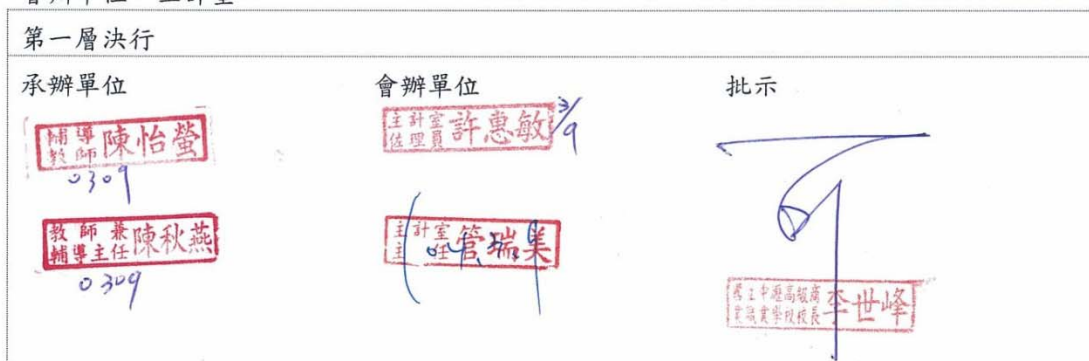 第一層決行
承辦單位
輔導教師 陳怡螢
0309
教師兼輔導主任 陳秋燕
0309
會辦單位
主計室佐理員 許惠敏 3/9
主計室主任 管瑞美
批示
李世峰